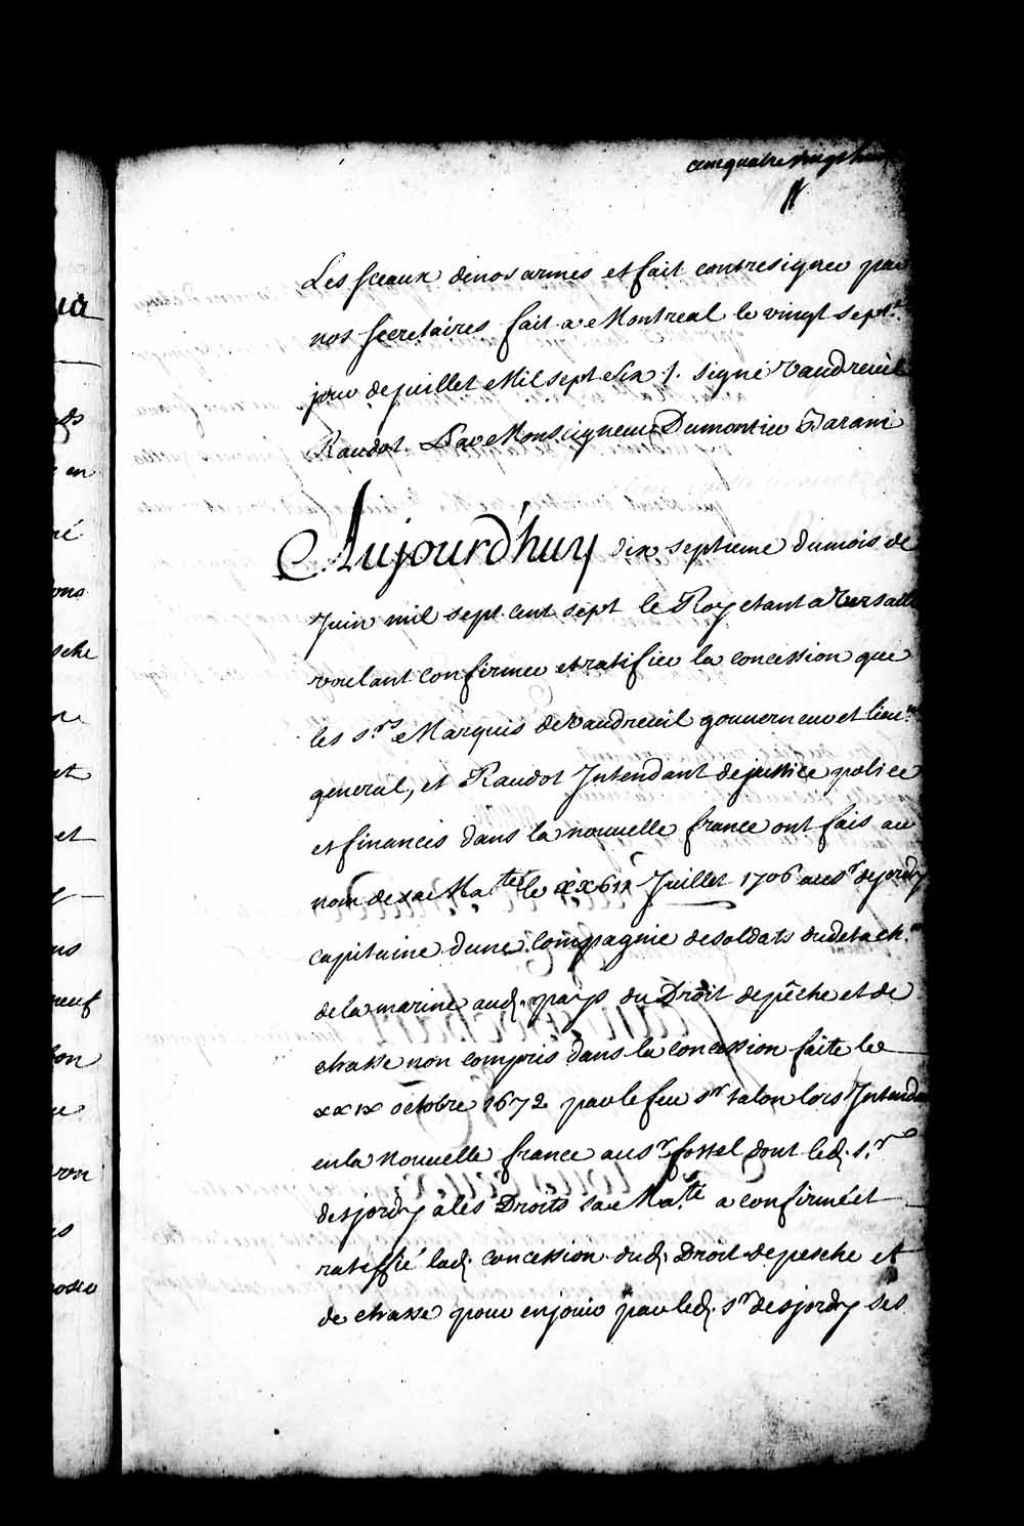 cent quatre vingt
Les sceaux denos armes et fait contresigner par
nos secretaires fait a Montreal le vingt sept.e
jour dejuillet Mil sept Six ./. signé Vaudreuil
Raudot Par Monseigneur Dumontier
Aujourd'huy dix septieme dumois de
Juin mil sept cent sept le Roy etant a Versaille
voulant confirmer et ratifier la concession que
les s.rs Marquis deVaudreuil gouverneur et lieu.nt
general, et Raudot Intendant dejustice police
et finances dans la nouvelle france ont fais au
nom de sa Ma.té le Juillet 1706 au s.r desjordy
capitaine dune compagnie desoldats dudetach.nt
dela marine aud. pays du Droit depêche et de
chasse non compris dans la concession faite le
xxix octobre 1672 par le feu s.r talon lors Intendant
enla Nouvelle france au s.r fossel dont led. s.r
desjordy a les Droits sa Ma.té a confirmé et
ratiffié lad. concession dud. Droit depesche et
de chasse pour enjouir par led. s.r desjordy ses
ua
en
ré
sche
et
et
neuf